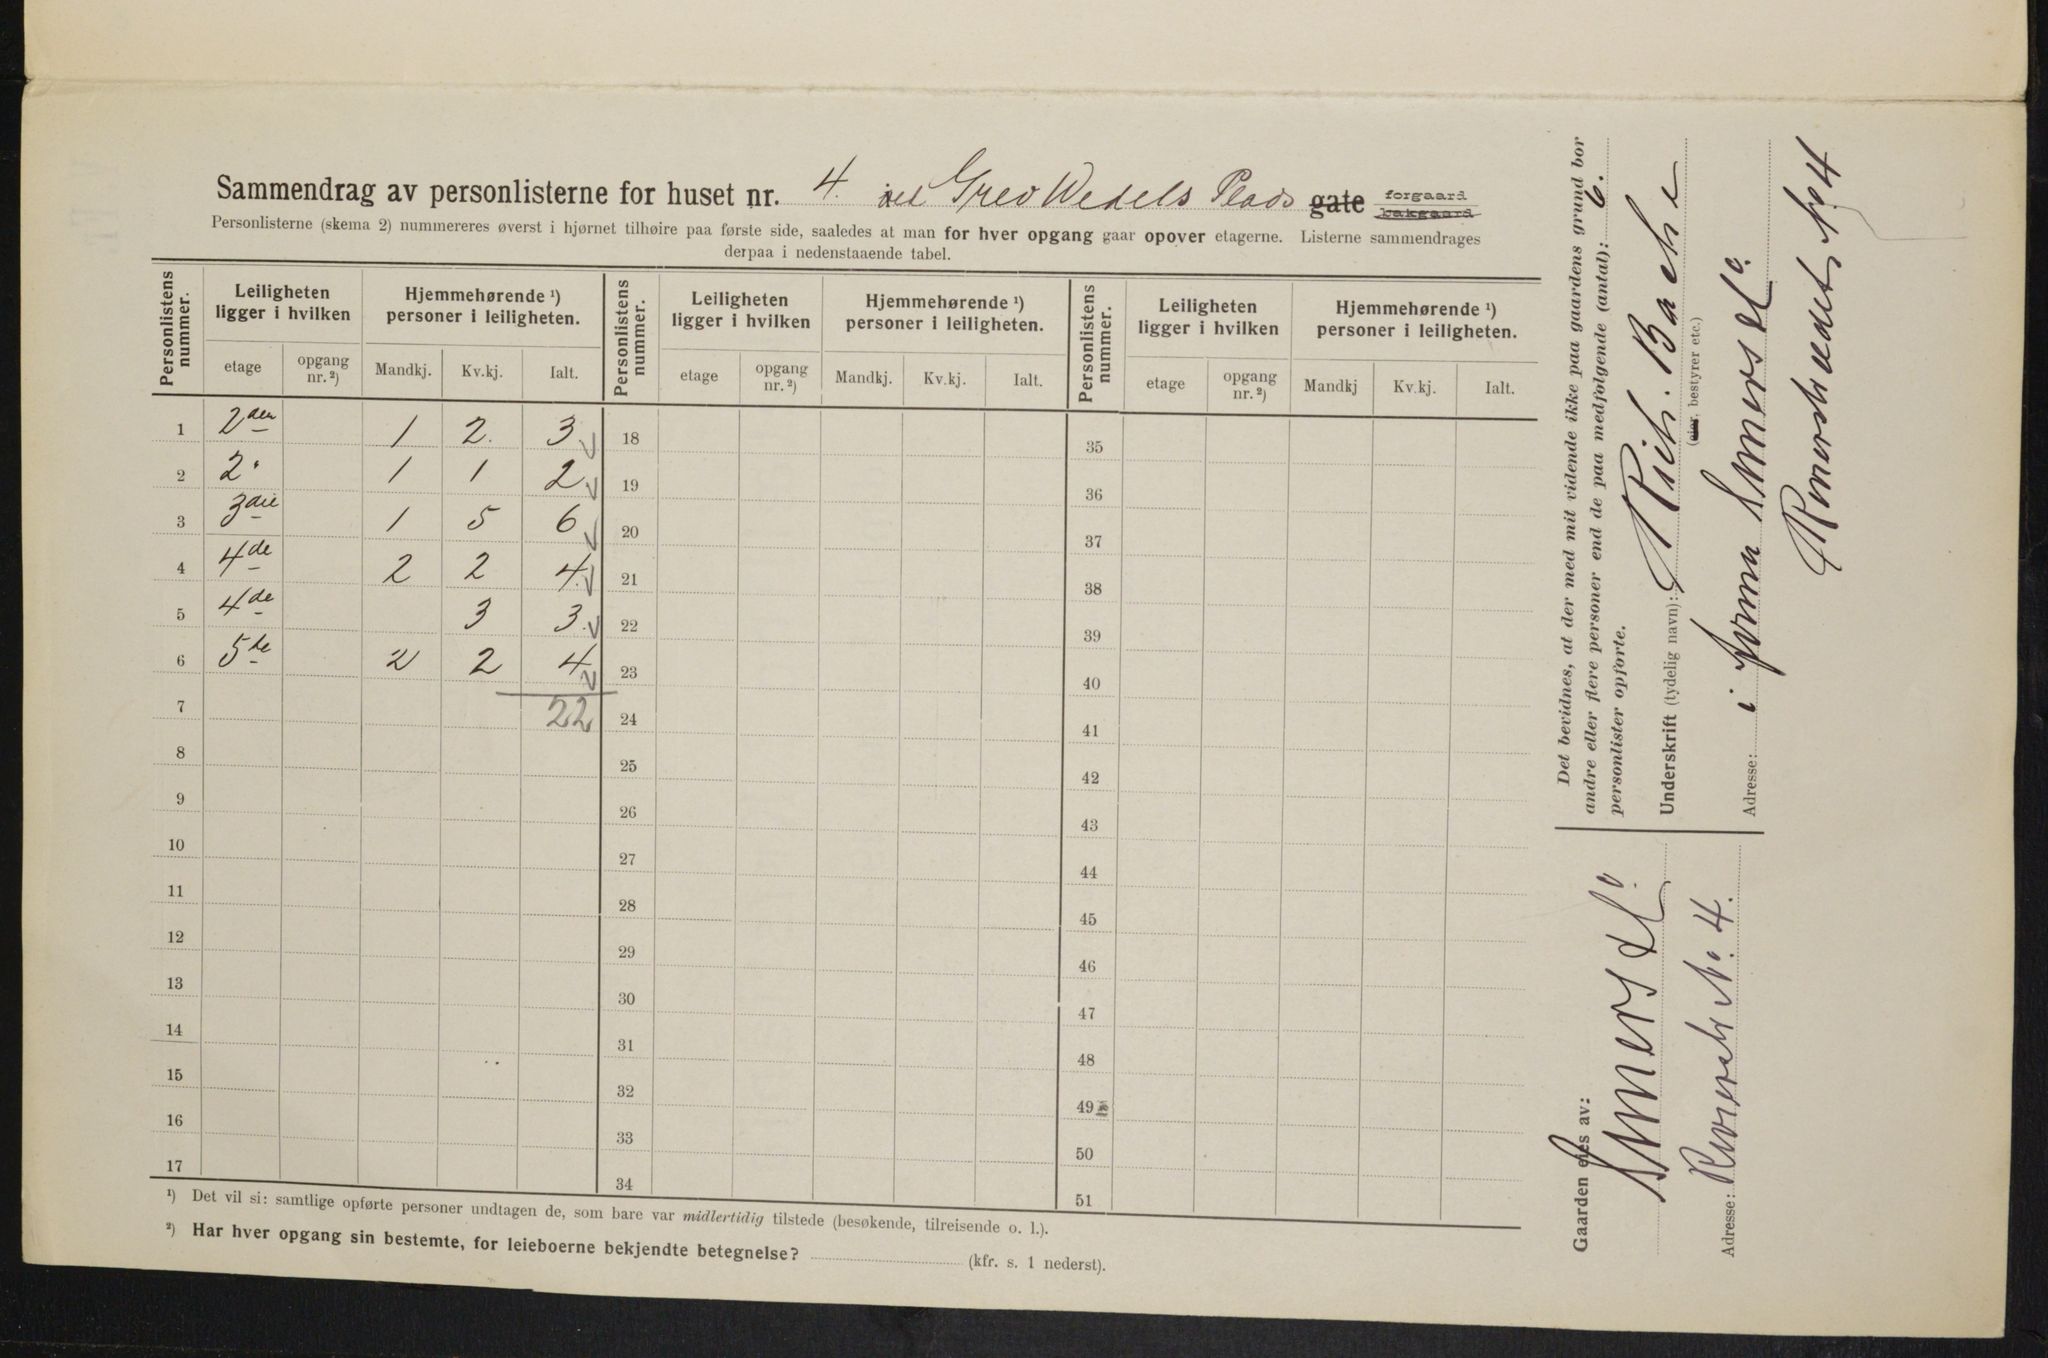 Sammendrag av personlisterne for huset nr. 4. ved Grev Wedels Plads gate forgaard bakgaard
Personlisterne (skema 2) nummereres øverst i hjørnet tilhøire paa første side, saaledes at man for hver opgang gaar opover etagerne. Listerne sammendrages
derpaa i nedenstaaende tabel.
Personlistens nummer. Leiligheten ligger i hvilken Hjemmehørende ¹) personer i leiligheten. Personlistens nummer. Leiligheten ligger i hvilken Hjemmehørende ¹) personer i leiligheten. Personlistens nummer. Leiligheten ligger i hvilken Hjemmehørende ¹) personer i leiligheten.
etage opgang nr. ²) Mandkj. Kv.kj. Ialt. etage opgang nr. ²) Mandkj. Kv.kj. Ialt. etage opgang nr. ²) Mandkj Kv.kj. Ialt.
1 2den 1 2. 3. 18 35
2 2" 1 1 2 19 36
3 3die 1 5 6 20 37
4 4de 2 2 4. 21 38
5 4de 3 3. 22 39
6 5te 2 2 4 23 40
7 22 24 41
8 25 42
9 26 43
10 27 44
11 28 45
12 29 46
13 30 47
14 31 48
15 32 49
16 33 50
17 34 51
¹) Det vil si: samtlige opførte personer undtagen de, som bare var midlertidig tilstede (besøkende, tilreisende o. l.).
²) Har hver opgang sin bestemte, for leieboerne bekjendte betegnelse? (kfr. s. 1 nederst).
Det bevidnes, at der med mit vidende ikke paa gaardens grund bor
andre eller flere personer end de paa medfølgende (antal): 6.
personlister opførte.
Underskrift (tydelig navn): Rich. Bache
(eier, bestyrer etc.)
i firma
Adresse: No 4
Gaarden eies av:
Adresse: No. 4.